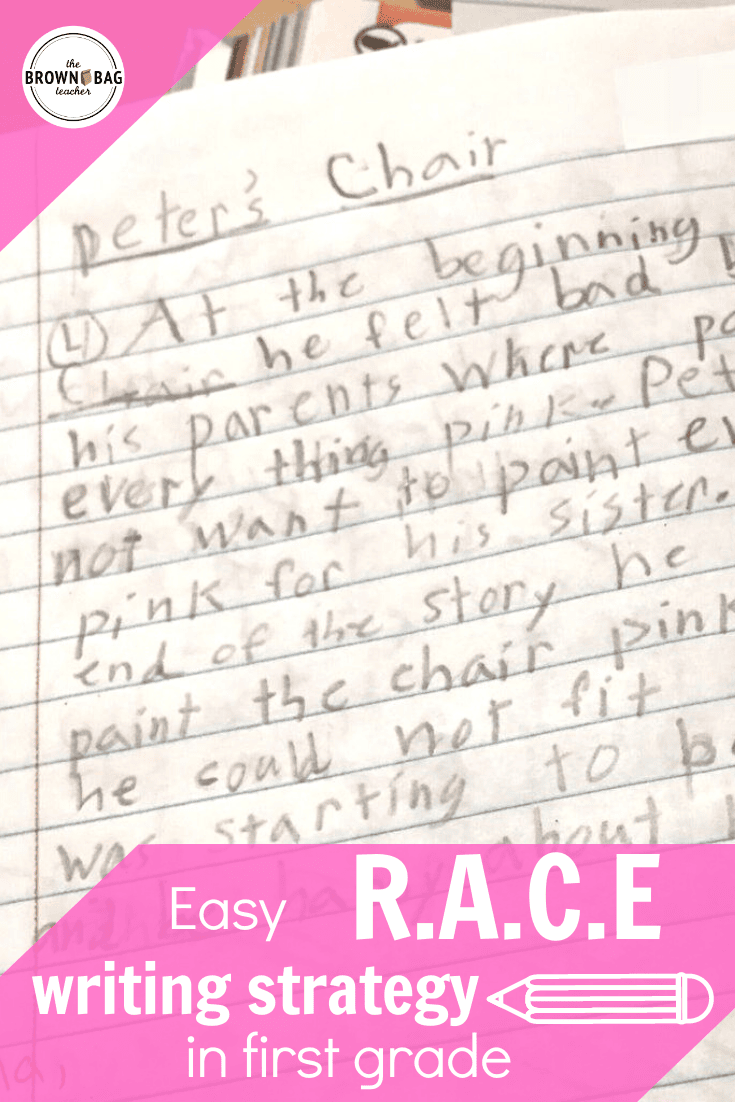 the
BROWN BAG
teacher
peter's Chair
④ At the beginning
Chair he felt bad
his parents where
every thing pink. Pet
not want to paint ev
pink for his sister.
end of the story he
paint the chair pink
he could not fit
was starting to b
and happy about
Easy R.A.C.E
writing strategy
in first grade